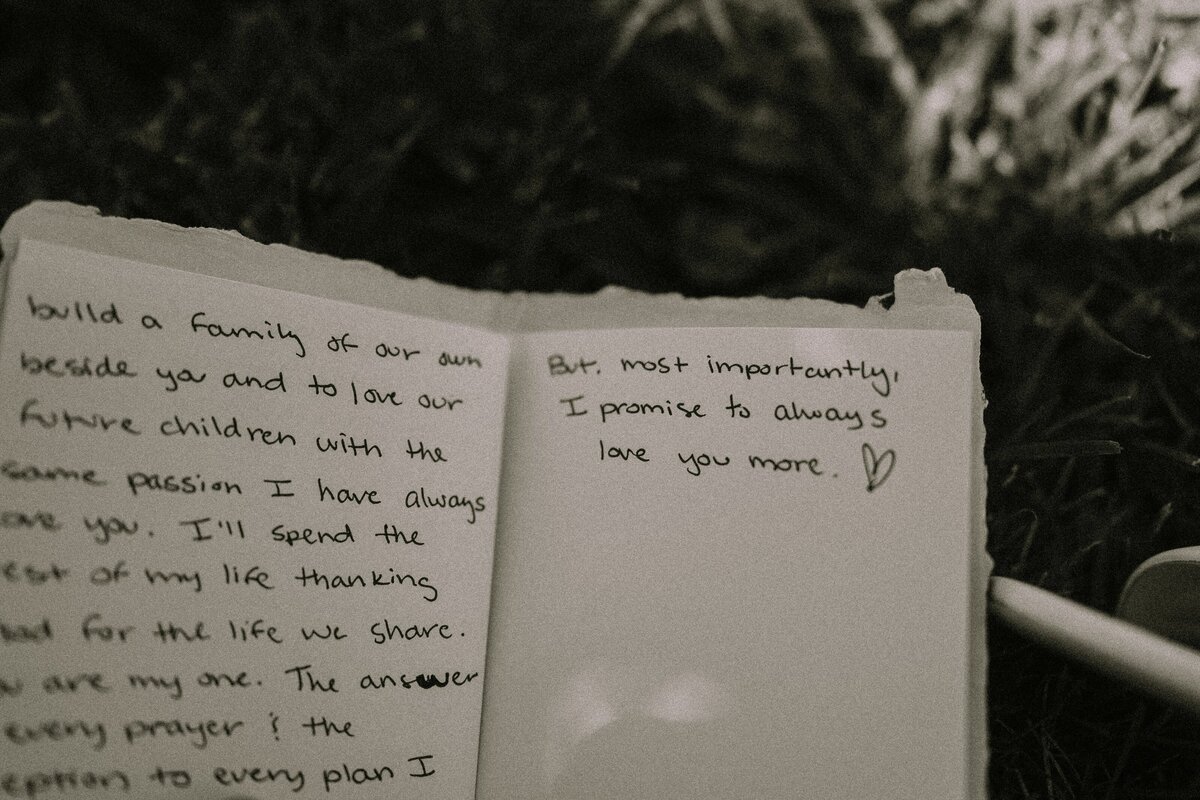 build a family of our own
beside you and to love our
future children with the
same passion I have always
you. I'll spend the
of my life thanking
for the life we share.
are my one. The answer
every prayer & the
to every plan I
But, most importantly,
I promise to always
love you more. ♡